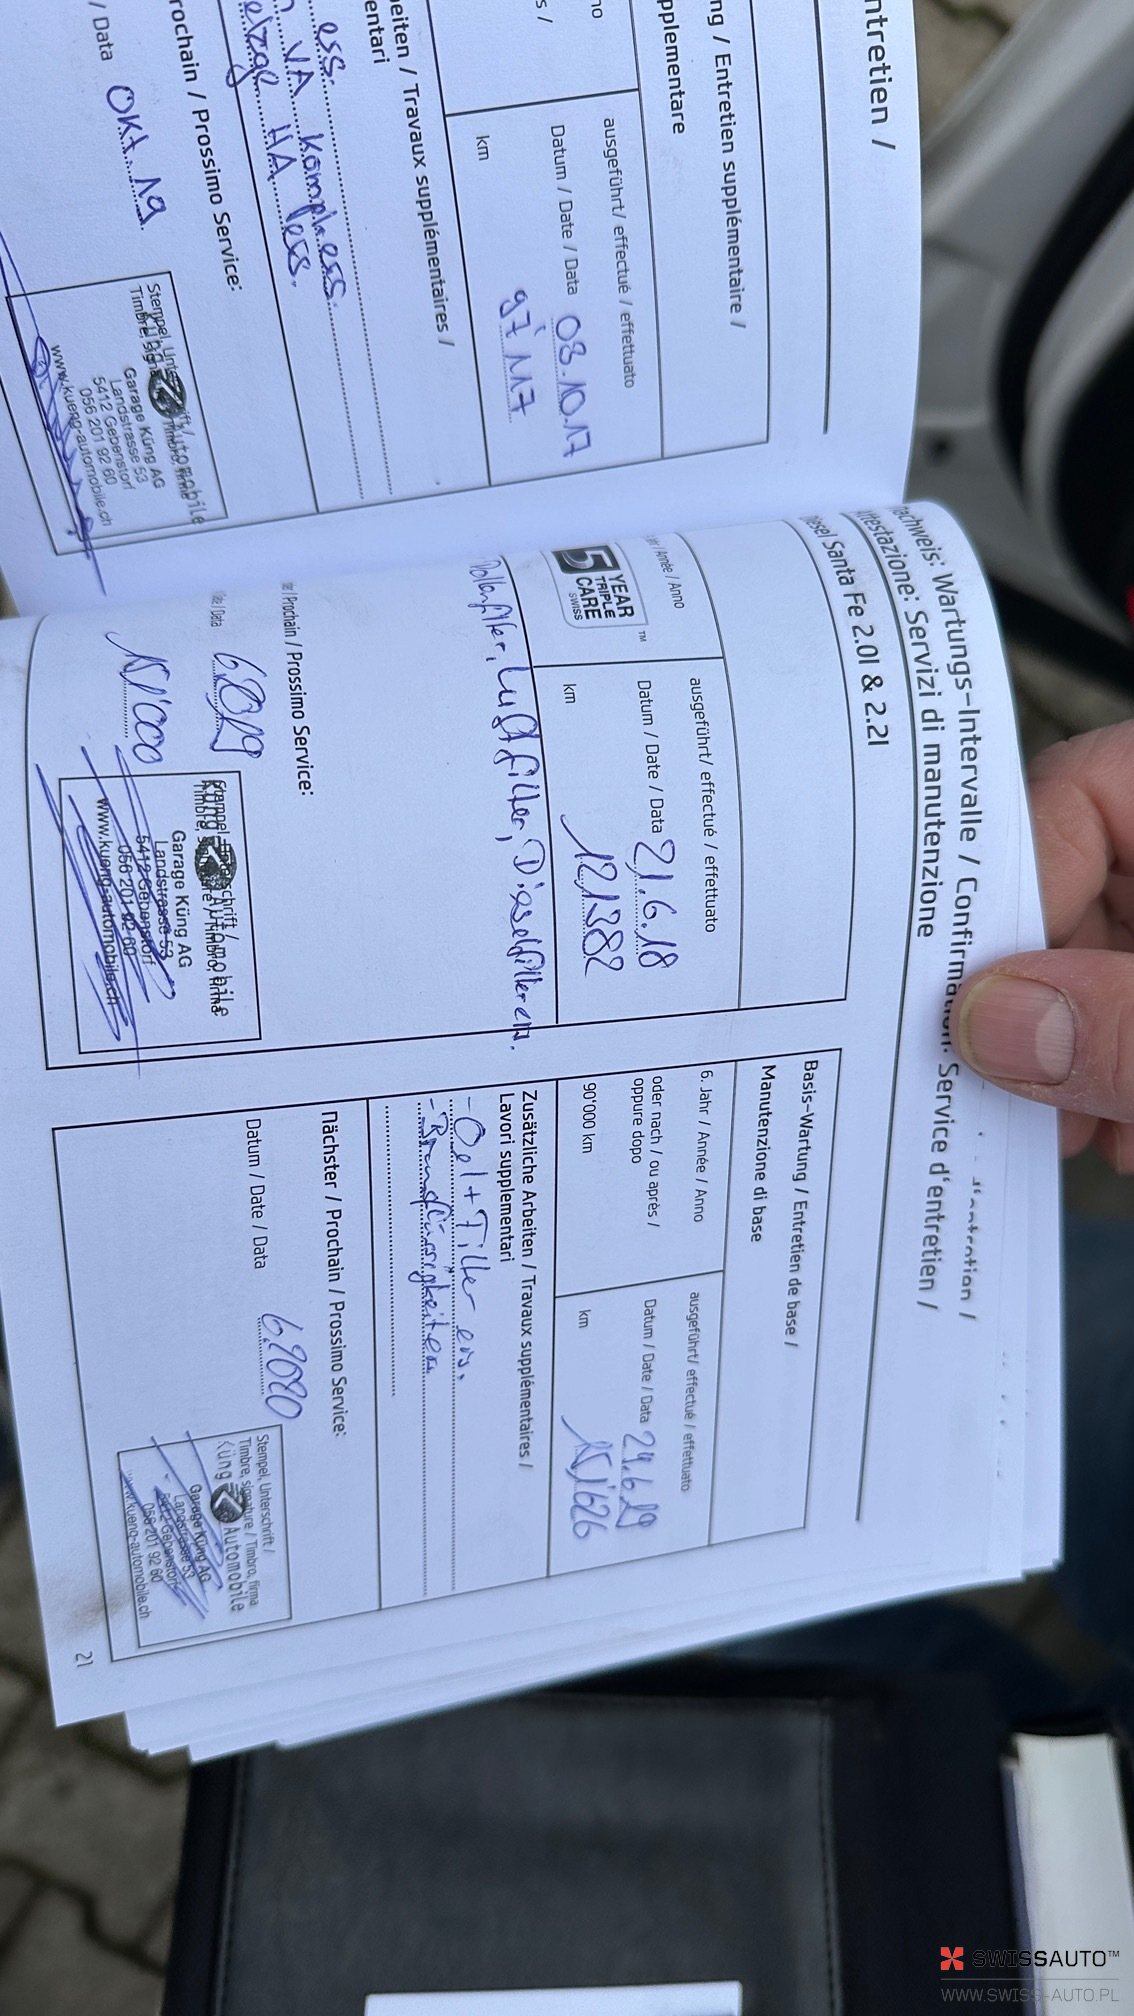 ntretien /
ng / Entretien supplémentaire /
pplementare
no
s /
ausgeführt/ effectué / effettuato
Datum / Date / Data 03.10.17
km
97'117
eiten / Travaux supplémentaires /
entari
ess.
VA kompl. ess.
HA ess.
rochain / Prossimo Service:
/ Data Okt. 19
Stempel, Unterschrift /
Küng Automobile
Garage Küng AG
Landstrasse 53
5412 Gebenstorf
056 201 92 60
www.kueng-automobile.ch
achweis: Wartungs-Intervalle / Confirmation: Service d'entretien /
ttestazione: Servizi di manutenzione
iesel Santa Fe 2.0l & 2.2l
/ Année / Anno
5 YEAR
TRIPLE
CARE
SWISS
TM
ausgeführt/ effectué / effettuato
Datum / Date / Data 21.6.18
km
121382
Pollenfilter, Luftfilter, Dieselfilter ers.
/ Prochain / Prossimo Service:
/ Data
6.2019
151'000
Stempel, Unterschrift /
Küng Automobile
Garage Küng AG
Landstrasse 53
5412 Gebenstorf
056 201 92 60
www.kueng-automobile.ch
Basis-Wartung / Entretien de base /
Manutenzione di base
6. Jahr / Année / Anno
oder nach / ou après /
oppure dopo
90'000 km
ausgeführt/ effectué / effettuato
Datum / Date / Data
km
151'626
Zusätzliche Arbeiten / Travaux supplémentaires /
Lavori supplementari
- Oel + Filter ers.
- Bremsflüssigkeit ers.
Nächster / Prochain / Prossimo Service:
Datum / Date / Data
6.2020
Stempel, Unterschrift /
Timbre, signature / Timbro, firma
Küng Automobile
Garage Küng AG
Landstrasse 53
5412 Gebenstorf
056 201 92 60
www.kueng-automobile.ch
21
SWISSAUTO™
WWW.SWISS-AUTO.PL